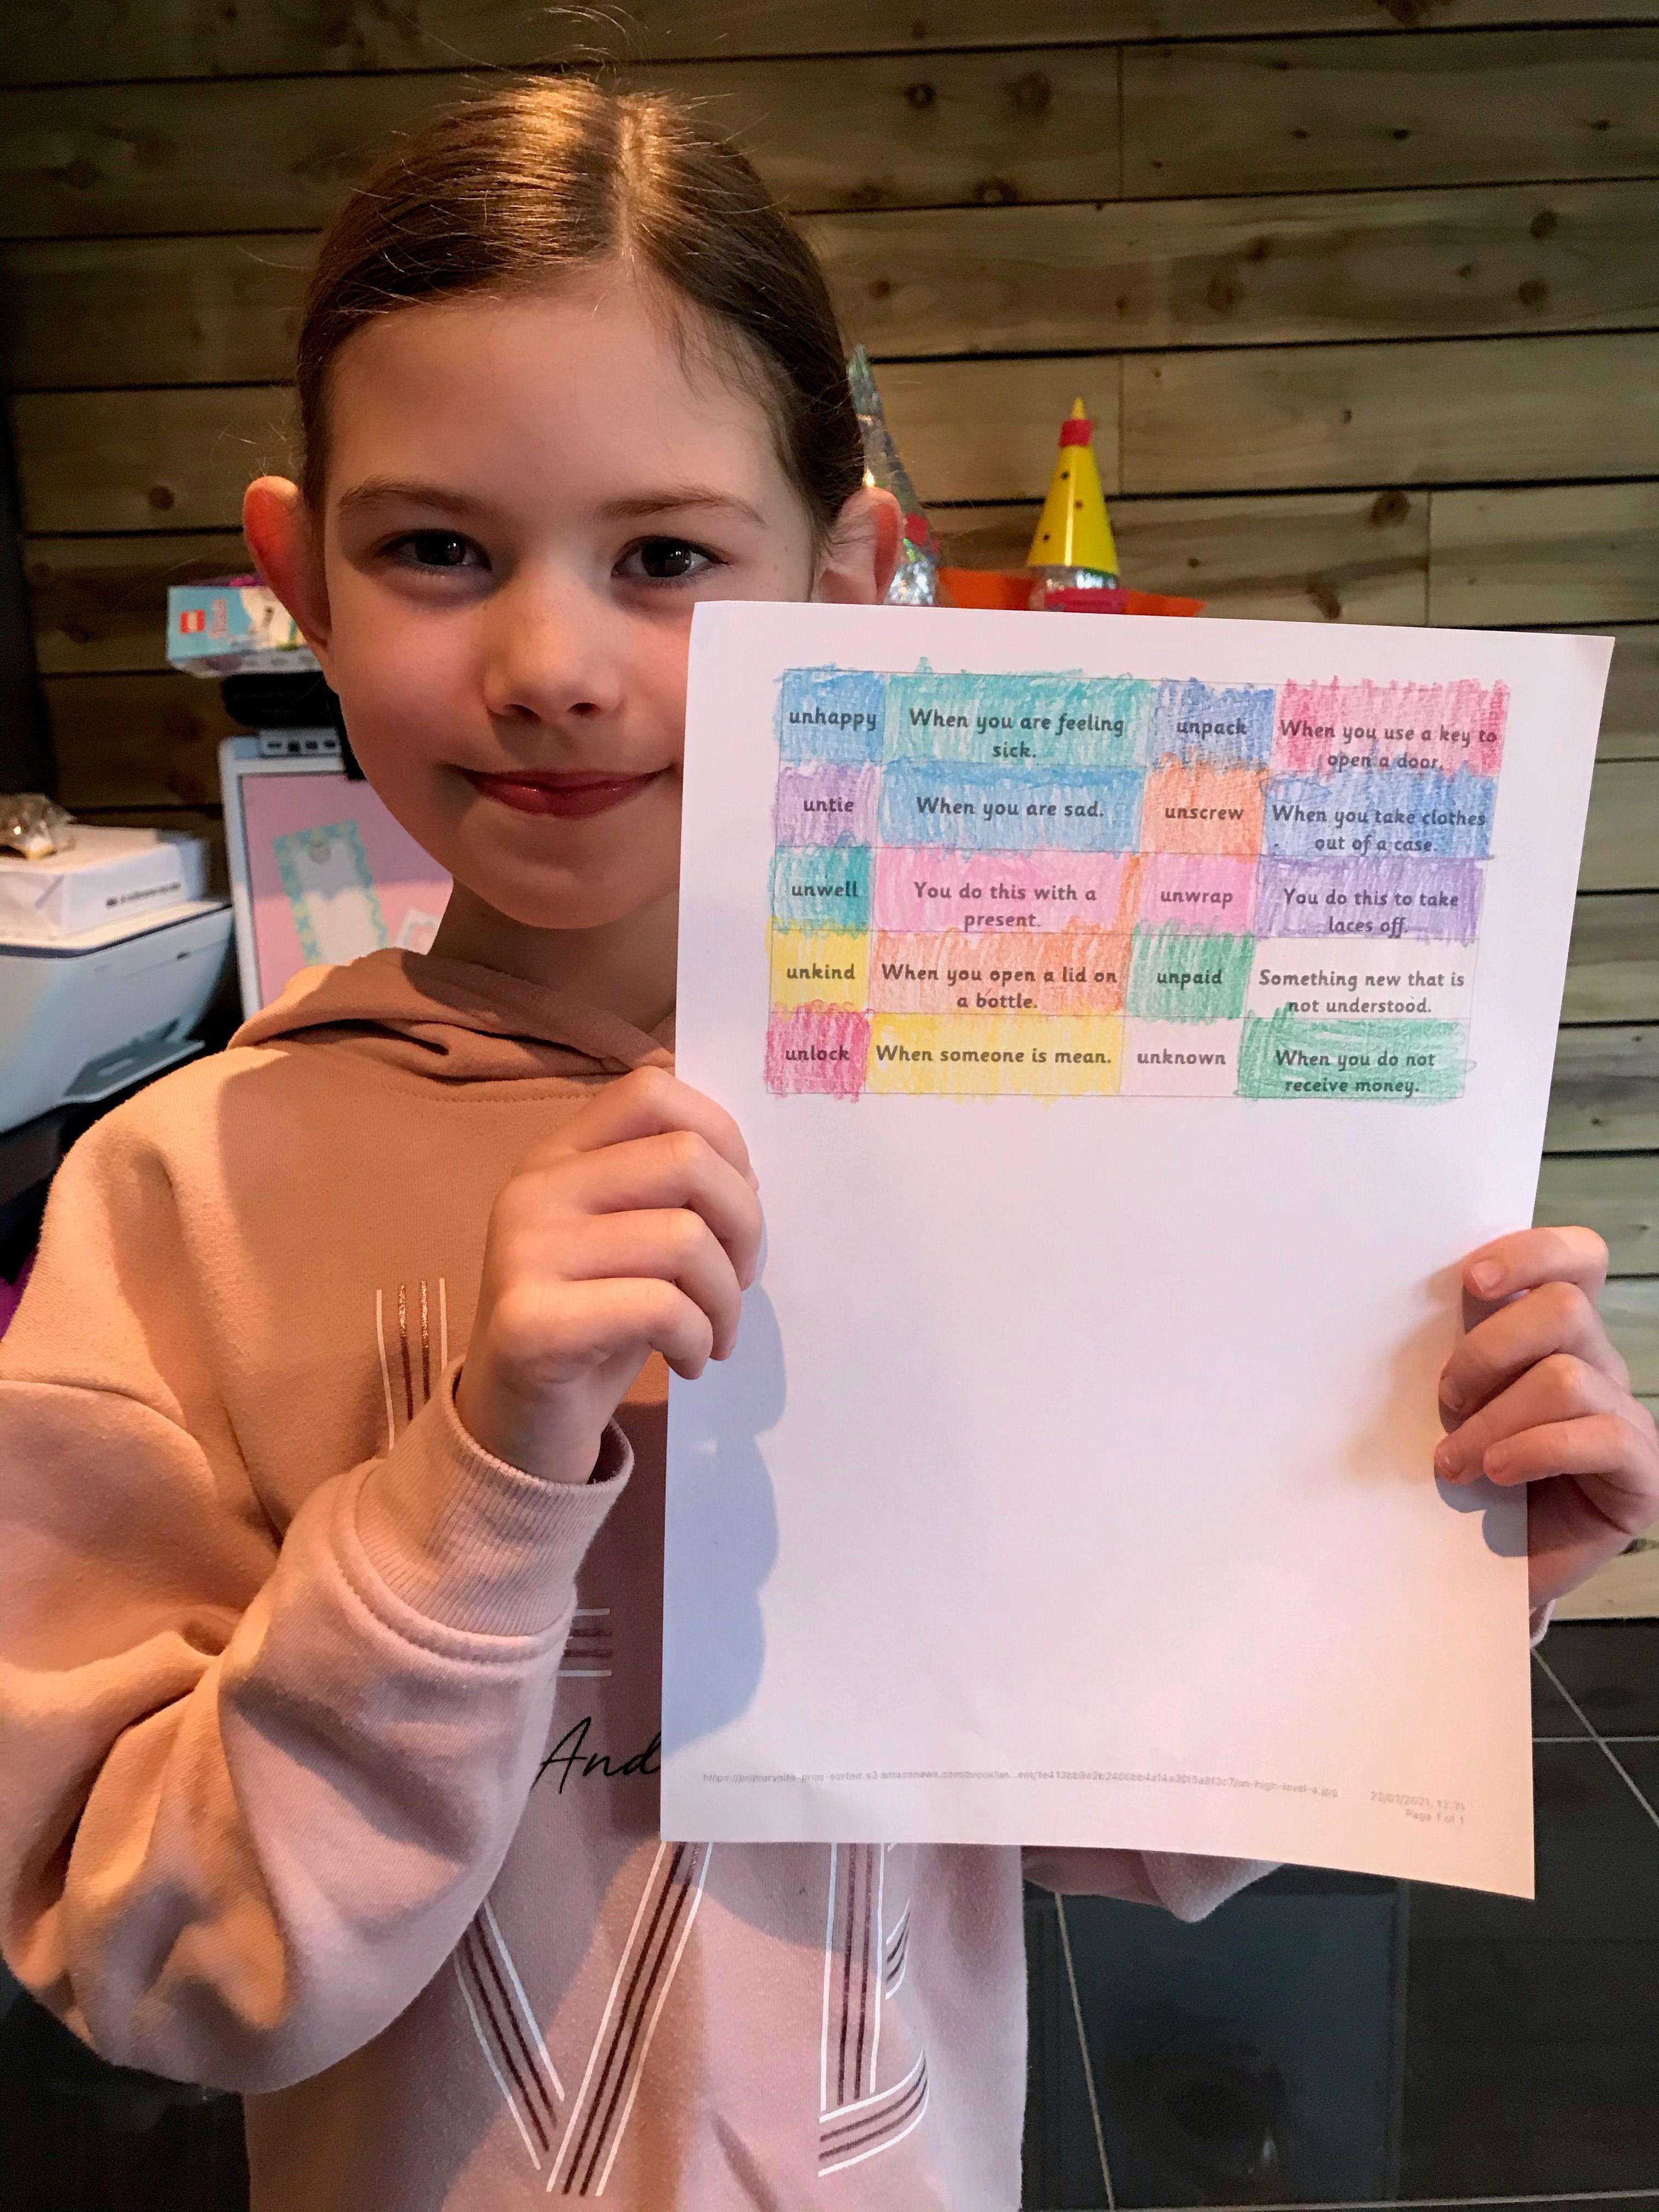 unhappy
When you are feeling
sick.
unpack
When you use a key to
open a door.
untie
When you are sad.
unscrew
When you take clothes
out of a case.
unwell
You do this with a
present.
unwrap
You do this to take
laces off.
unkind
When you open a lid on
a bottle.
unpaid
Something new that is
not understood.
unlock
When someone is mean.
unknown
When you do not
receive money.
And
Page 1 of 1